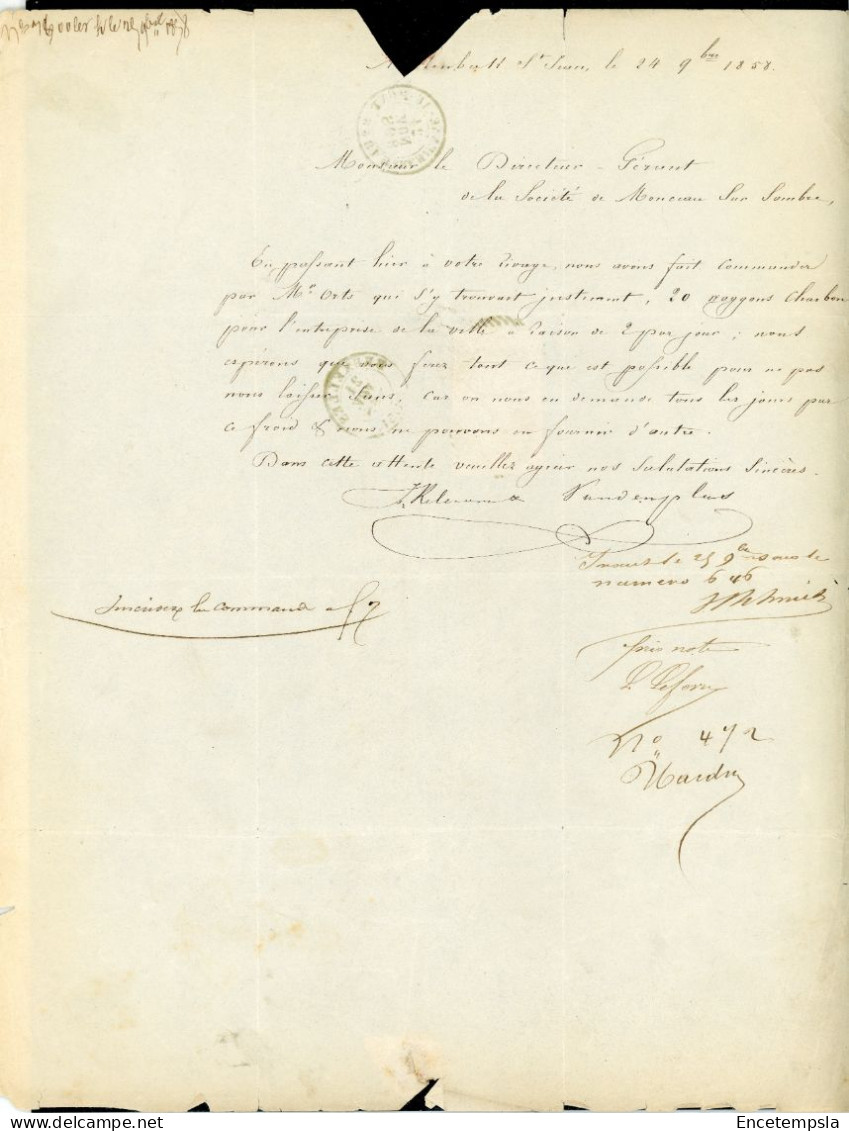 St Jean, le 24 9bre 1858.
Monsieur le Directeur-Gérant
de la Société de Monceau Sur Sambre,
En passant hier à votre rivage, nous avons fait commander
par Mr Orts qui s'y trouvait justement, 20 waggons Charbon
pour l'entreprise de la ville à raison de 2 par jour; nous
espérons que vous ferez tout ce que est possible pour ne pas
nous laisser sans, car on nous en demande tous les jours par
ce froid & nous ne pouvons en fournir d'autre.
Dans cette attente veuillez agréer nos Salutations Sincères.
Vandenplas
le 25 9bre sous le
numero 646
la commande
pris note
No 472
Encetempsla